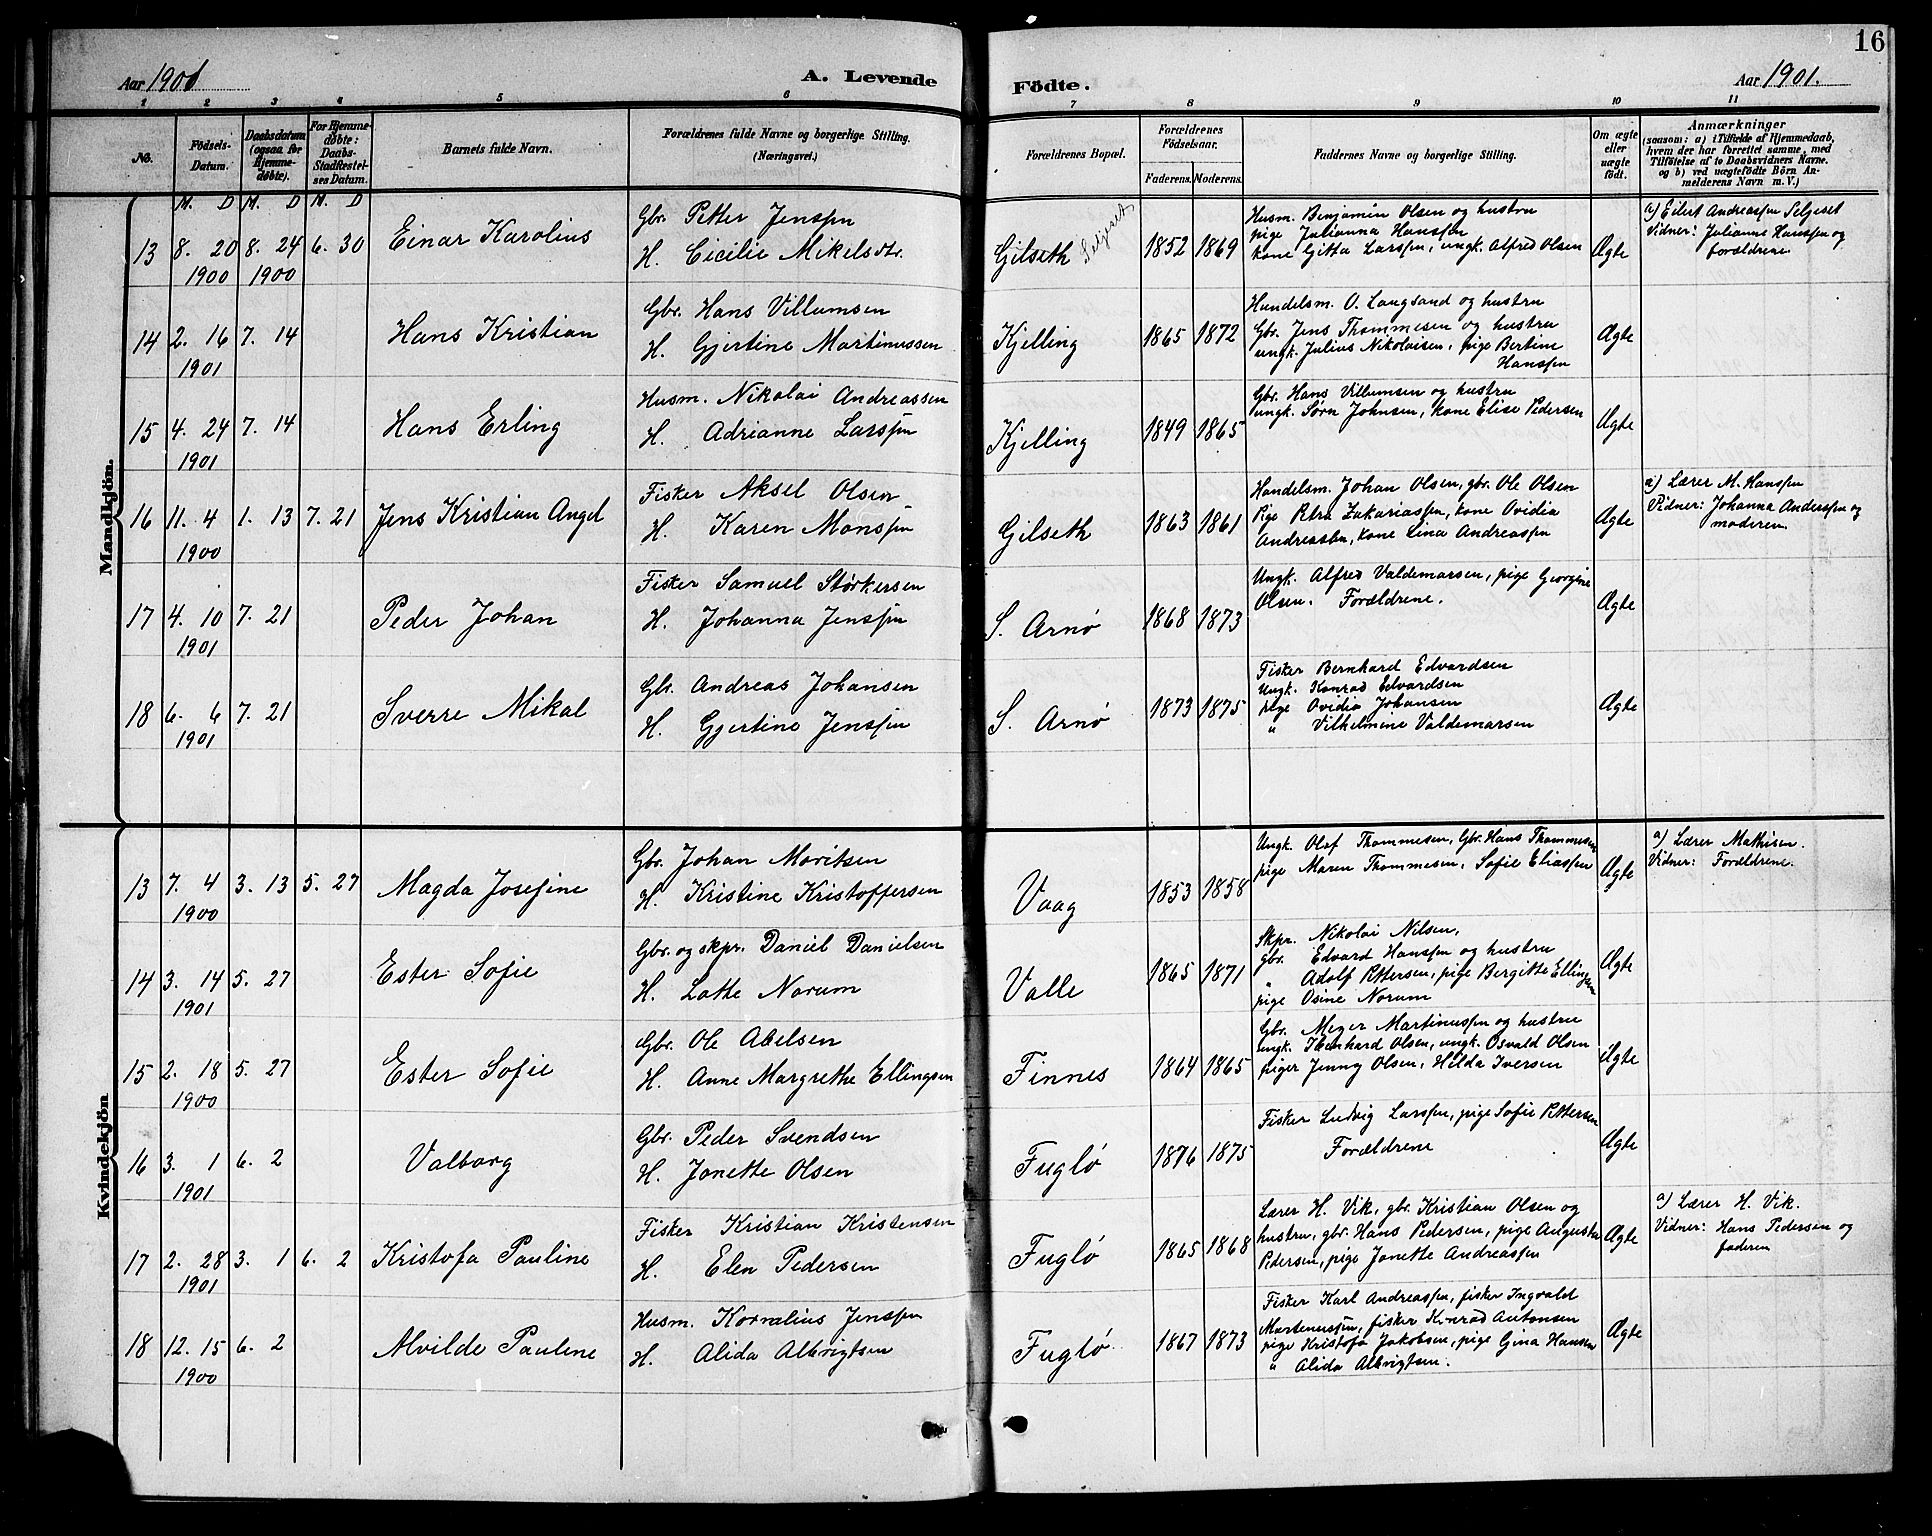 16
Aar 1901
A. Levende Födte.
Aar 1901.
1 2 3 4 5 6 7 8 9 10 11
No.
Födsels-Datum.
Daabsdatum (ogsaa for Hjemme-døbte).
For Hjemme-døbte: Daabs-Stadfæstel-ses Datum.
Barnets fulde Navn.
Forældrenes fulde Navne og borgerlige Stilling. (Næringsvei.)
Forældrenes Bopæl.
Forældrenes Fødselsaar.
Faderens. Moderens.
Faddernes Navne og borgerlige Stilling.
Om ægte eller uægte födt.
Anmærkninger
(saasom: a) i Tilfælde af Hjemmedaab, hvem der har forrettet samme, med Tilføielse af to Daabsvidners Navne. og b) ved uægtefødte Börn An-melderens Navn m. V.)
Mandkjön.
M. D M. D M. D
13 8. 20 1900 8. 24 1900 6. 30 Einar Karolius
Gbr. Petter Jenssen
H. Cicilie Mikelsdtr.
Gilseth 1852 1869
Husm. Benjamin Olsen og hustru
pige Julianna Hanssen
kone Gitta Larssen, ungk. Alfred Olsen
Ægte
a) Eilert Andreassen Seljeset
Vidner: Julianne Hanssen og
forældrene.
14 2. 16 1901 7. 14 Hans Kristian
Gbr. Hans Villumsen
H. Gjertine Martinussen
Kjelling 1865 1872
Handelsm. O. Langsand og hustru
Gbr. Jens Thommesen og hustru
ungk. Julius Nikolaisen, pige Bertine
Hanssen
Ægte
15 4. 24 1901 7. 14 Hans Erling
Husm. Nikolai Andreassen
H. Adrianne Larssen
Kjelling 1849 1865
Gbr. Hans Villumsen og hustru
ungk. Sørn Johnsen, kone Elise Pedersen
Ægte
16 11. 4 1900 1. 13 7. 21 Jens Kristian Angel
Fisker Aksel Olsen
H. Karen Monssen
Gilseth 1863 1861
Handelsm. Johan Olsen, gbr. Ole Olsen
Pige Petra Zakariassen, kone Ovidia
Andreassen, kone Lina Andreassen
Ægte
a) Lærer M. Hanssen
Vidner: Johanna Anderssen og
moderen.
17 4. 10 1901 7. 21 Peder Johan
Fisker Samuel Størkersen
H. Johanna Jenssen
S. Arnø 1868 1873
Ungk. Alfred Valdemarsen, pige Georgine
Olsen. Forældrene.
Ægte
18 6. 6 1901 7. 21 Sverre Mikal
Gbr. Andreas Johansen
H. Gjertine Jenssen
S. Arnø 1873 1875
Fisker Bernhard Edvardsen
Ungk. Konrad Edvardsen
pige Ovidia Johansen
" Vilhelmine Valdemarsen
Ægte
Kvindekjön
13 7. 4 1900 3. 13 5. 27 Magda Josefine
Gbr. Johan Moritsen
H. Kristine Kristoffersen
Vaag 1853 1858
Ungk. Olaf Thommesen, Gbr. Hans Thommesen
pige Maren Thommesen, Sofie Eliassen
Ægte
a) Lærer Mathisen.
Vidner: Forældrene.
14 3. 14 1901 5. 27 Ester Sofie
Gbr. og skpr. Daniel Danielsen
H. Lotte Norum
Valle 1865 1871
Skpr. Nikolai Nilsen,
gbr. Edvard Hanssen og hustru
" Adolf Pettersen, pige Bergitte Ellingsen
pige Osine Norum
Ægte
15 2. 18 1900 5. 27 Ester Sofie
Gbr. Ole Abelsen
H. Anne Margrethe Ellingsen
Finnes 1864 1865
Gbr. Meyer Martinussen og hustru
ungk. Ibenhard Olsen, ungk. Osvald Olsen
piger Jenny Olsen, Hilda Iversen
Ægte
16 3. 1 1901 6. 2 Valborg
Gbr. Peder Svendsen
H. Jonette Olsen
Fuglø 1876 1875
Fisker Ludvig Larssen, pige Sofie Pettersen
Forældrene
Ægte
17 2. 28 1901 3. 1 6. 2 Kristofa Pauline
Fisker Kristian Kristensen
H. Elen Pedersen
Fuglø 1865 1868
Lærer H. Vik, gbr. Kristian Olsen og
hustru, gbr. Hans Pedersen, pige Augusta
Pedersen, pige Jonette Andreassen
Ægte
a) Lærer H. Vik.
Vidner: Hans Pedersen og
faderen
18 12. 15 1900 6. 2 Alvilde Pauline
Husm. Kornelius Jenssen
H. Alida Albrigtsen
Fuglø 1867 1873
Fisker Karl Andreassen, fisker Ingvald
Martenussen, fisker Konrad Antonsen
pige Kristofa Jakobsen, pige Gina Hansen
" Alida Albrigtsen.
Ægte